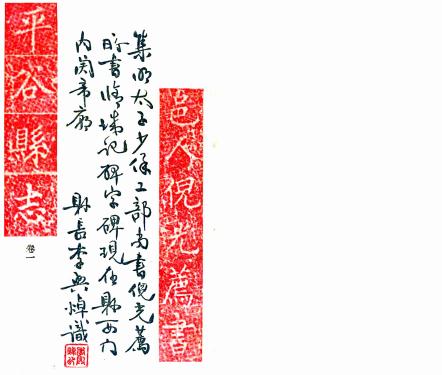 邑人倪光薦書
集明太子少保工部尚書倪光薦
所書脩城記碑字碑現在縣西門
内関帝廟 縣長李興焯識
平谷縣志
卷一